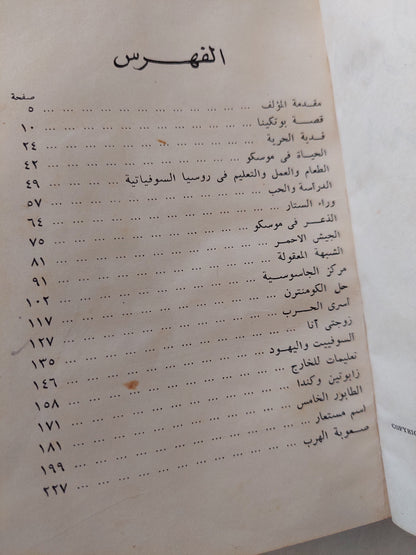 الفهرس
صفحة
مقدمة المؤلف ... ... ... ... ... ... ... ... ٥
قصة بوتكينا ... ... ... ... ... ... ... ... ١٠
فدية الحرية ... ... ... ... ... ... ... ... ٢٤
الحياة فى موسكو ... ... ... ... ... ... ... ٤٢
الطعام والعمل والتعليم فى روسيا السوفياتية ... ... ... ٤٩
الدراسة والحب ... ... ... ... ... ... ... ٥٧
وراء الستار ... ... ... ... ... ... ... ... ٦٤
الذعر فى موسكو ... ... ... ... ... ... ... ٧٥
الجيش الاحمر ... ... ... ... ... ... ... ... ٨١
الشبهة المعقولة ... ... ... ... ... ... ... ٩١
مركز الجاسوسية ... ... ... ... ... ... ... ١٠٢
حل الكومنترن ... ... ... ... ... ... ... ١١٧
أسرى الحرب ... ... ... ... ... ... ... ... ١٢٧
زوجتى آنا ... ... ... ... ... ... ... ... ١٣٥
السوفييت واليهود ... ... ... ... ... ... ... ١٤٦
تعليمات للخارج ... ... ... ... ... ... ... ١٥٨
زابوتين وكندا ... ... ... ... ... ... ... ١٧١
الطابور الخامس ... ... ... ... ... ... ... ١٨١
اسم مستعار ... ... ... ... ... ... ... ... ١٩٩
صعوبة الهرب ... ... ... ... ... ... ... ... ٢٢٧